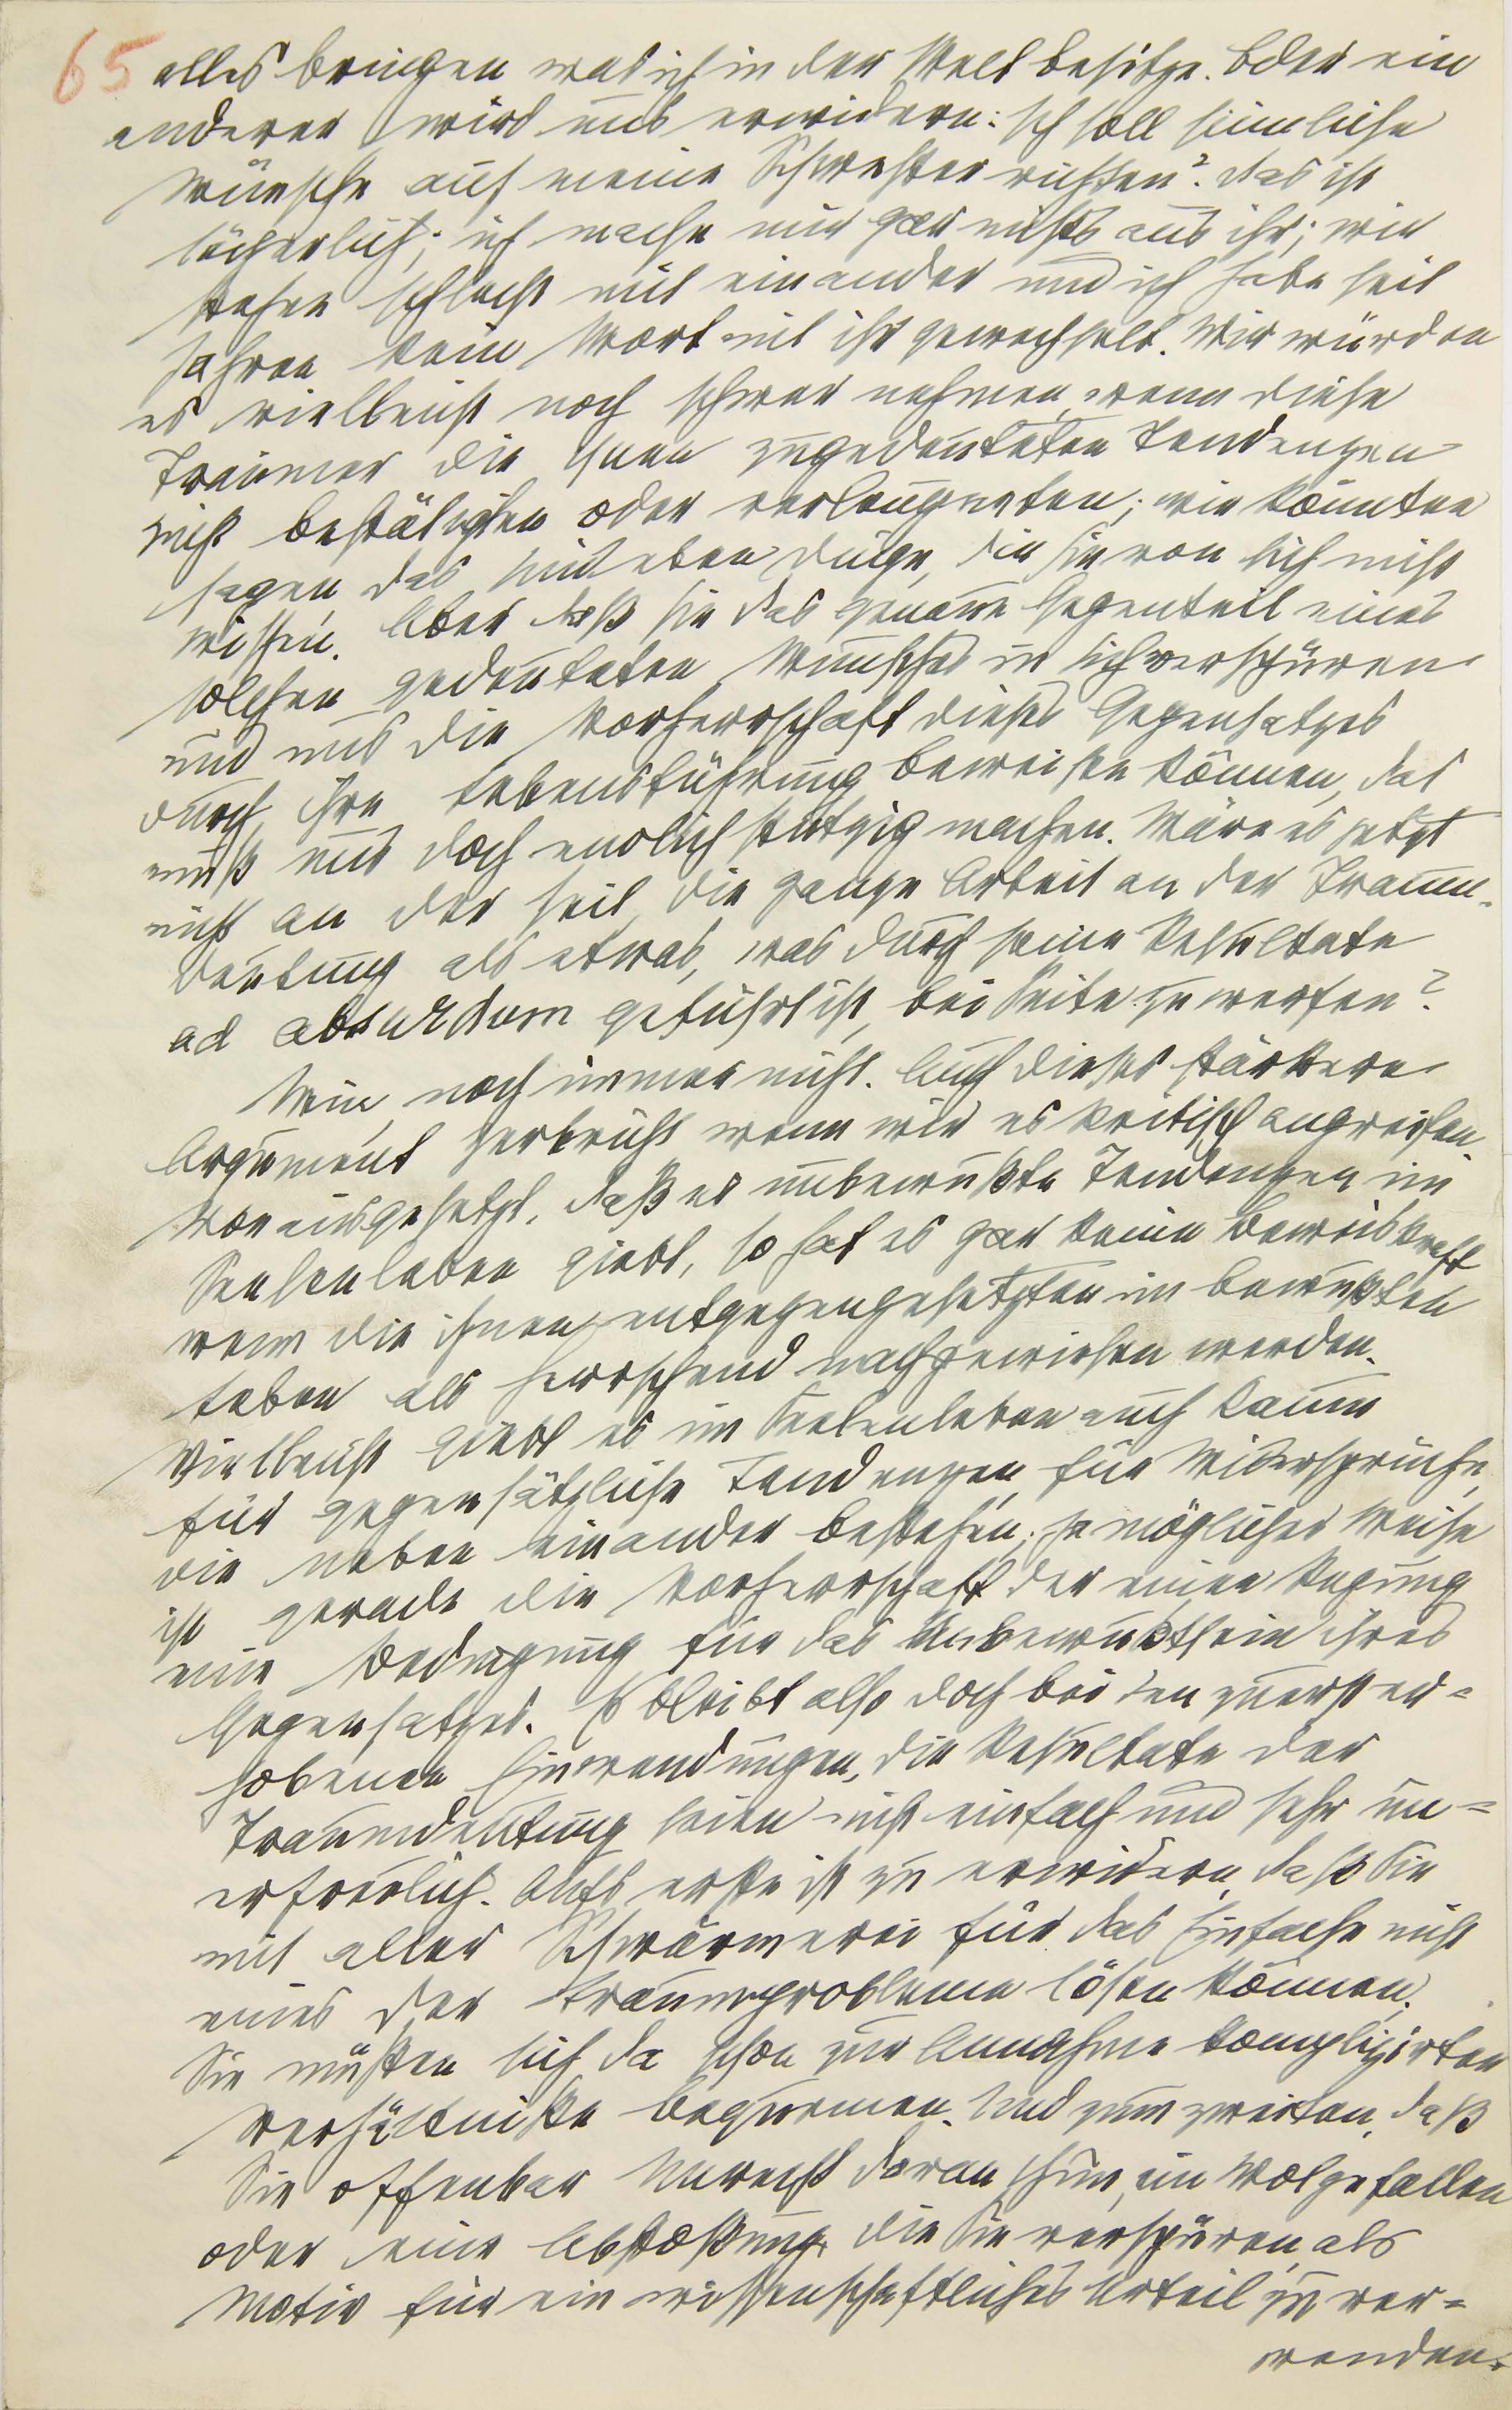 65 alles bringen was ich in der Welt besitze. Oder ein
anderer wird uns erwidern: Ich soll sinnliche
Wünsche auf meine Schwester richten? Das ist
lächerlich; ich mache mir gar nichts aus ihr; wir
stehen schlecht mit einander und ich habe seit
Jahren kein Wort mit ihr gewechselt. Wir würden
es vielleicht noch schwer nehmen, wenn diese
Träumer die ihnen zugedeuteten Tendenzen
nicht bestätigten oder verleugneten; wir könnten
sagen, das sind eben Dinge, die sie von sich nicht
wissen. Aber daß sie das genaue Gegenteil eines
solchen gedeuteten Wunsches in sich verspüren
und uns die Vorherrschaft dieses Gegensatzes
durch ihre Lebensführung beweisen können, das
muß uns doch endlich stutzig machen. Wäre es jetzt
nicht an der Zeit, die ganze Arbeit an der Traum-
deutung als etwas, was durch seine Resultate
ad absurdum geführt ist, bei Seite zu werfen?
Nein, noch immer nicht. Auch dieses stärkere
Argument zerbricht wenn wir es kritisch angreifen.
Vorausgesetzt, daß es unbewußte Tendenzen im
Seelenleben giebt, so hat es gar keine Beweiskraft
wenn die ihnen entgegengesetzten im bewußten
Leben als herrschend nachgewiesen werden.
Vielleicht giebt es im Seelenleben auch Raum
für gegensätzliche Tendenzen, für Widersprüche,
die neben einander bestehen; ja möglicher Weise
ist gerade die Vorherrschaft der einen Regung
eine Bedingung für das Unbewußtsein ihres
Gegensatzes. Es bleibt also doch bei den zuerst er=
hobenen Einwendungen, die Resultate der
Traumdeutung seien nicht einfach und sehr un=
erfreulich. Aufs erste ist zu erwidern, daß Sie
mit aller Schwärmerei für das Einfache nicht
eines der Traumprobleme lösen können.
Sie müßen sich da schon zur Annahme komplizirter
Verhältniße bequemen. Und zum zweiten, daß
Sie offenbar Unrecht daran thun, ein Wolgefallen
oder eine Abstoßung, die Sie verspüren, als
Motiv für ein wissenschaftliches Urteil zu ver=
wenden.